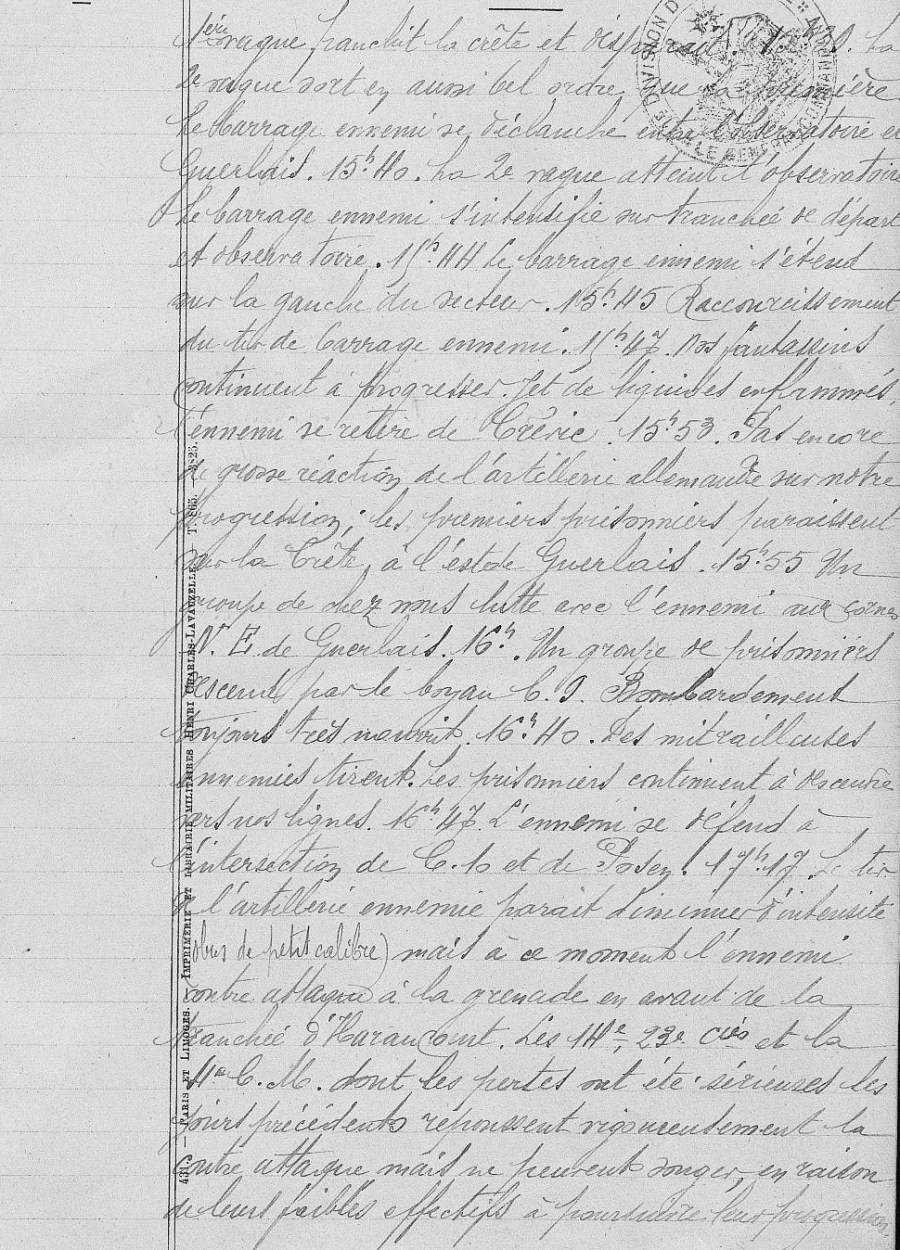 1ère vague franchit la crête et disparait. La
2e vague sort en aussi bel ordre que la première
Le barrage ennemi se déclanche entre l'observatoire et
Guerlais. 15h40. La 2e vague atteint l'observatoire
Le barrage ennemi s'intensifie sur tranchée de départ
et observatoire. 15h44 Le barrage ennemi s'étend
sur la gauche du secteur. 15h45 Raccourcissement
du tir de barrage ennemi. 15h47. Nos fantassins
continuent à progresser. Jet de liquides enflammés,
l'ennemi se retire de Crévic. 15h53. Pas encore
de grosse réaction de l'artillerie allemande sur notre
progression; les premiers prisonniers paraissent
sur la Crête à l'est de Guerlais. 15h55 Un
groupe de chez nous lutte avec l'ennemi aux cornes
N. E. de Guerlais. 16h. Un groupe de prisonniers
descend par le boyau C. 9. Bombardement
toujours très nourrit. 16h40. Les mitrailleuses
ennemies tirent. Les prisonniers continuent à descendre
vers nos lignes. 16h47. L'ennemi se défend à
l'intersection de C. 10 et de Posen. 17h17. Le tir
de l'artillerie ennemie parait diminuer d'intensité
(obus de petit calibre) mais à ce moment l'ennemi
contre attaque à la grenade en avant de la
tranchée d'Haraucourt. Les 14e, 23e Cies et la
4e C. M. dont les pertes ont été sérieuses les
jours précédents repoussent vigoureusement la
contre attaque mais ne peuvent songer, en raison
de leurs faibles effectifs à poursuivre leur progression.
431. — PARIS ET LIMOGES. — IMPRIMERIE ET LIBRAIRIE MILITAIRES HENRI CHARLES-LAVAUZELLE. — T. 865. — 3-25.
DIVISION
LE GÉNÉRAL COMMANDANT